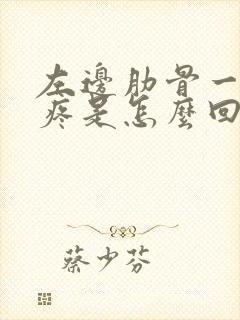 左邊肋骨一
疼是怎麼回
蔡少芬